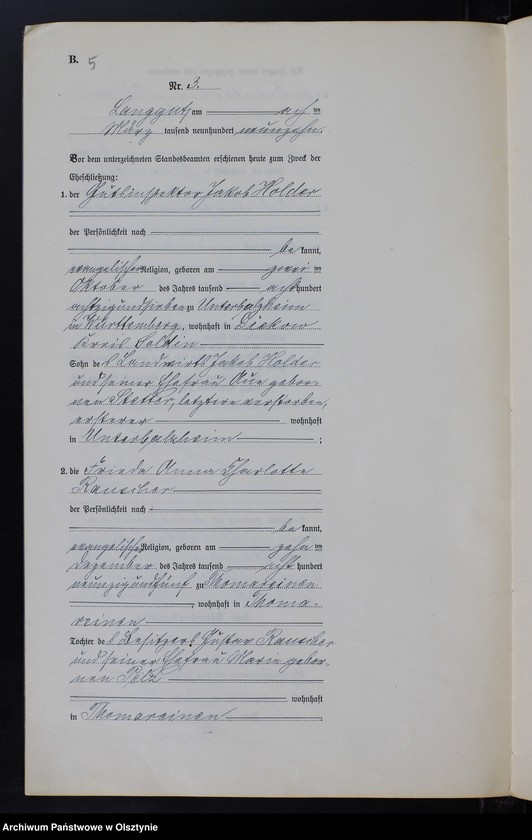 B. 5
Nr. 3.
Langgut, am acht ten
März tausend neunhundert neunzehn.
Vor dem unterzeichneten Standesbeamten erschienen heute zum Zweck der
Eheschließung:
1. der Gutsinspektor Jakob Holder
der Persönlichkeit nach
be kannt,
evangelischer Religion, geboren am zwei ten
Oktober des Jahres tausend acht hundert
achtzigundsieben zu Unterbalzheim
in Württemberg, wohnhaft in Dickow
Kreis Soldin
Sohn des Landwirts Jakob Holder
und seiner Ehefrau gebor-
nen Stetter, letztere verstorben,
ersterer wohnhaft
in Unterbalzheim ;
2. die Frieda Anna Charlotte
Rauscher
der Persönlichkeit nach
be kannt,
evangelischer Religion, geboren am zehn ten
Dezember des Jahres tausend acht hundert
neunzigundfünf zu Thomareinen
, wohnhaft in Thoma-
reinen
Tochter des Besitzers Gustav Rauscher
und seiner Ehefrau Marie gebor-
nen Pelz
wohnhaft
in Thomareinen
Archiwum Państwowe w Olsztynie